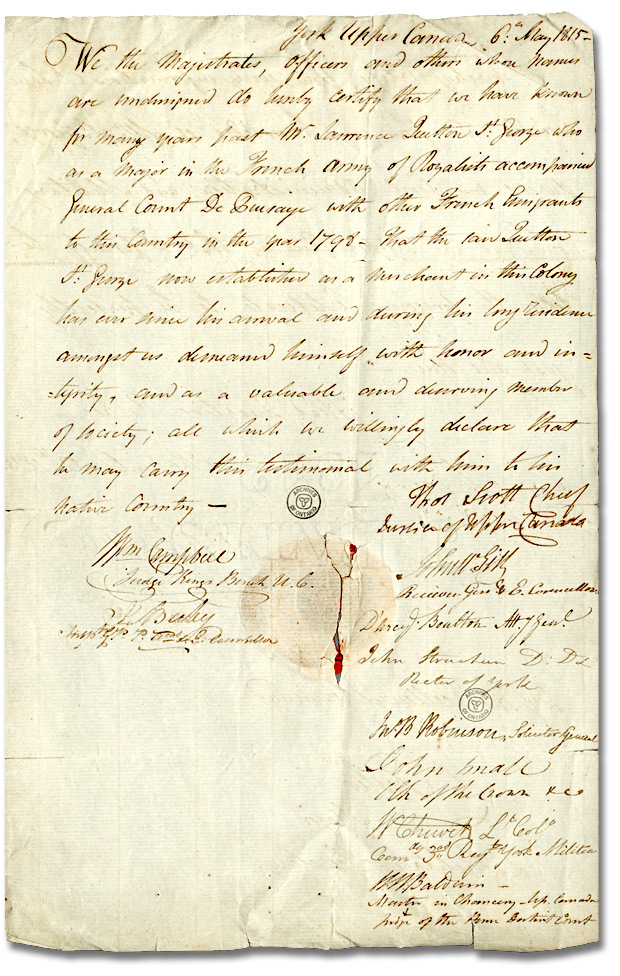 York Upper Canada 6th May 1815 –
We the Magistrates, Officers and others whose names
are undersigned do hereby certify that we have known
for many years past Mr. Lawrence Quetton St. George who
as a Major in the French Army of Royalists accompanied
General Count De Puisaye with other French Emigrants
to this Country in the year 1798 – that the said Quetton
St. George now established as a Merchant in this Colony
has ever since his arrival and during his long residence
amongst us demeaned himself with honor and in-
-tegrity, and as a valuable and deserving member
of society; all which we willingly declare that
he may carry this testimonial with him to his
native Country –
Thos Scott Chief
Justice of Upper Canada
Wm Campbell
Judge Kings Bench U. C.
ARCHIVES OF ONTARIO
Receiver Genl & E. Councellor
D'arcy Boulton Atty Genl.
John Strachan D: D
Rector of York
ARCHIVES OF ONTARIO
Jno B Robinson, Solicitor General
John Small
Clk of the Crown &c
W Chewett Lt Coll
Comdg 3rd Regt York Militia
W W Baldwin –
Master in Chancery – Up. Canada
Judge of the Home District Court